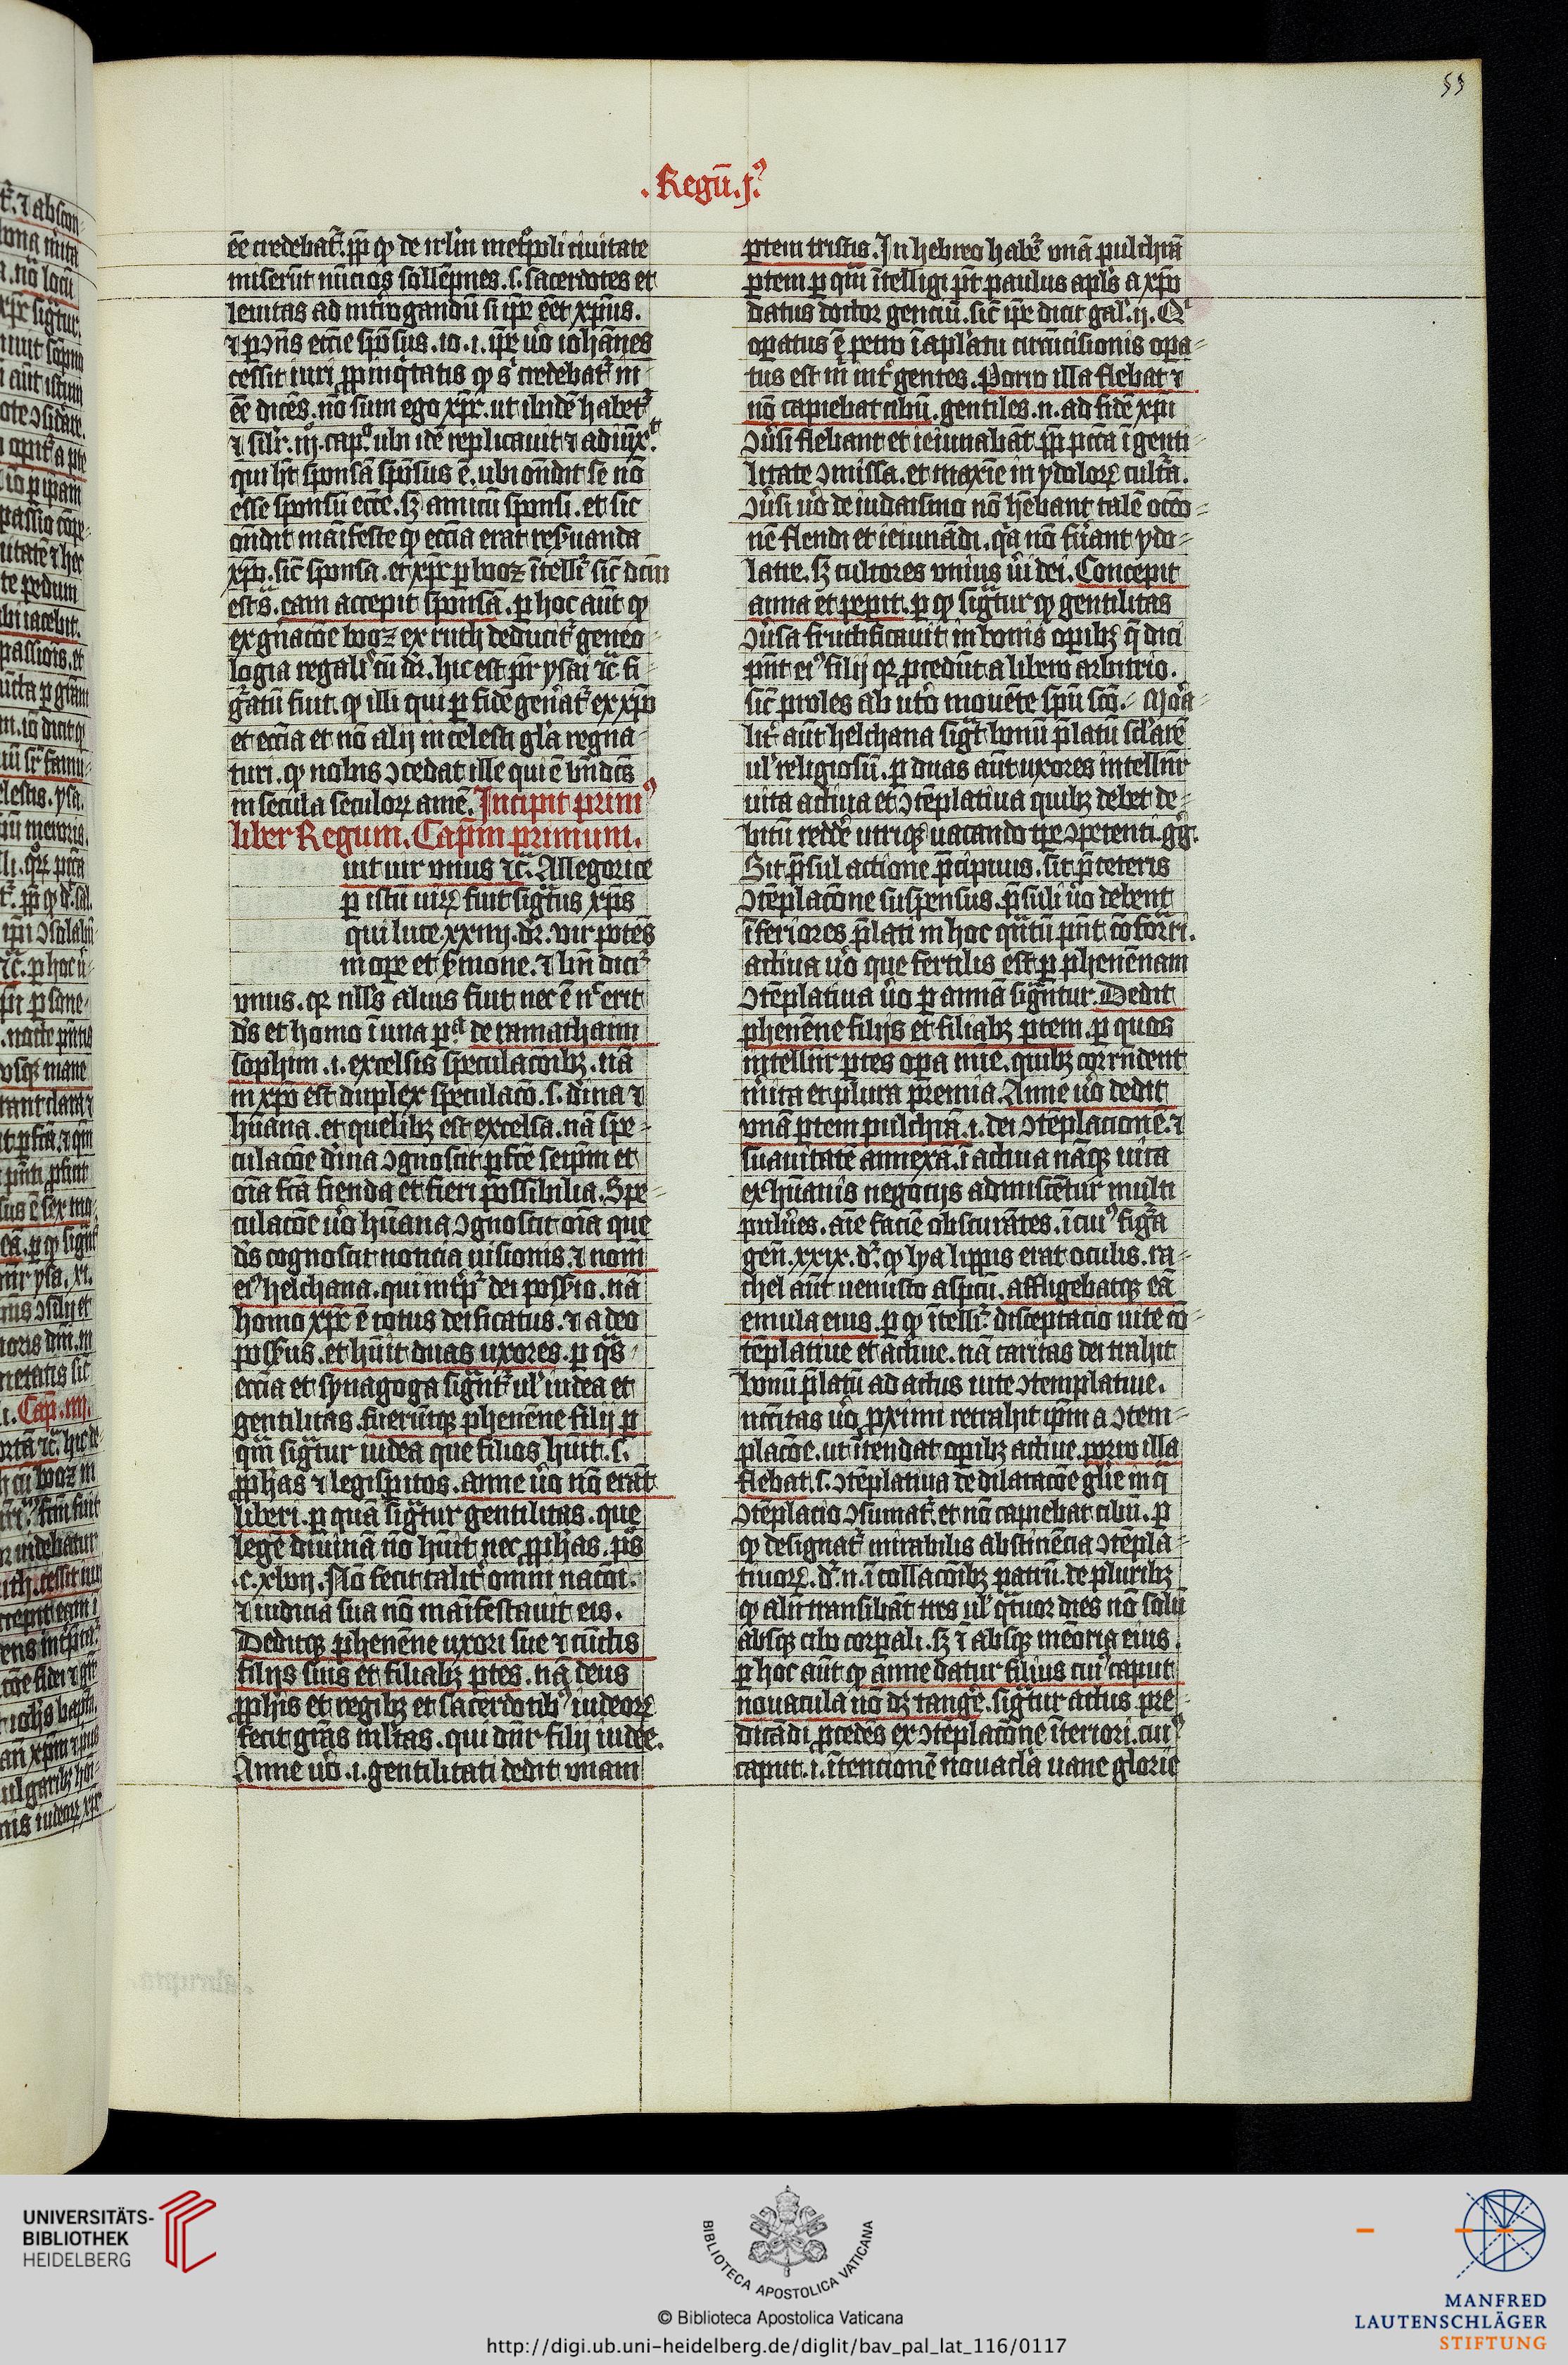 55
.Regū.j.⁹
ēe credebat᷑. ꝓp̄ ꝙ de irl̄m met͛poli ciuitate
miserūt nūcios sollēpnes .s. sacerdotes et
leuitas ad int͛rogandū si ip̄e eēt xp̄us.
⁊ ꝑ ↄn̄s ecc̄ie spōsus .io.i. ip̄e ū̊o ioh̄anes
cessit iuri ꝓpinq̄tatis ꝙ s͛ credebat᷑ in
ēe dicēs. nō sum ego xp̄c. ut ibidē habet᷑
⁊ sil͛r .iij. cap͛. ubi idē replicauit ⁊ adiūx͛.
qui ht̄ sponsā spōsus ē. ubi on̄dit se nō
esse sponsū ecc̄e. sꝫ amicū sponsi. et sic
on̄dit māifeste ꝙ ecc̄ia erat res͛uanda
xp̄o. sic̄ sponsa. et xp̄c ꝑ booz ītelli͛ sic̄ dc̄m
est s͛. eam accepit sponsā. ꝑ hoc aūt ꝙ
ex gn̄acōe booz ex ruth deducit᷑ geneo-
logia regal͛ cū dr̄. hic est pr̄ ysai ⁊c̄ fi-
g͛atū fuit. ꝙ illi qui ꝑ fidē gen͛at᷑ ex xp̄o
et ecc̄ia et nō alij in celesti gl̄a regna-
turi. ꝙ nobis ↄcedat ille qui ē bn̄dc̄s
in secula seculoꝝ amē. Incipit prim⁹
liber Regum. Cap̄m primum.
uit uir vnus ⁊c̄. Allegorice
ꝑ istū uirū fuit sig͛tus xp̄s
qui luce .xxiiij. dr̄. vir potēs
in oꝑe et s͛mone. ⁊ bn̄ dici᷑
vnus. qr nll̄s alius fuit nec ē n͛ erit
ds̄ et homo ī una ꝑ͛. de ramathaim
sophim .i. excelsis speculacōibꝫ. nā
in xp̄o est duplex speculacō .s. dīna ⁊
hūana. et quelibꝫ est excelsa. nā spe-
culacōe dīna ↄgnoscit ꝑfc̄e seip̄m et
oīa fc̄a fienda et fieri possibilia. Spe-
culacōe ū̊o hūana ↄgnoscit oīa que
ds̄ cognoscit noticia uisionis. ⁊ nom̄
ei⁹ helchana. qui int͛p͛ dei possō. nā
homo xp̄c ē totus deificatus. ⁊ a deo
possus. et hūit duas uxores. ꝑ q͛s
ecc̄ia et synagoga sig͛nt᷑ ul͛ iudea et
gentilitas. fuerūtqꝫ phenēne filij ꝑ
qm̄ sig͛tur iudea que filios hūit .s.
ꝓphas ⁊ legisꝑitos. anne ū̊o nō erāt
liberi. ꝑ quā sig͛tur gentilitas. que
legē diuinā nō hūit nec ꝓphas. ps̄
.c.xlvij. Nō fecit talit͛ omni nacōi.
⁊ iudicia sua nō māifestauit eis.
Deditqꝫ phenēne uxori sue ⁊ cūctis
filijs suis et filiabꝫ ꝑtes. nā deus
ꝓphis et regibꝫ et sacerdotib⁹ iudeoꝝ
fecit gr̄as ml̄tas. qui dn̄r filij iudee.
Anne ū̊o .i. gentilitati dedit vnam
ꝑtem tristis. In hebreo habet᷑ vnā pulchrā
ꝑtem ꝑ qm̄ ītelligi pt̄ paulus apl̄s a xp̄o
datus doctor genciū. sic̄ ip̄e dicit gal͛.ij. Q͛
oꝑatus ē petro ī apl̄atu circūcisionis opa-
tus est m̄ int͛ gentes. Porro illa flebat ⁊
nō capiebat cibū. gentiles .n. ad fidē xp̄i
ↄu͛si flebant et ieiunabāt ꝓp̄ pcc̄a ī genti-
litate ↄmissa. et maxīe in ydoloꝝ cult͛a.
ↄu͛si ū̊o de iudaismo nō hēbant talē occō-
nē flendi et ieiunādi. q͛a nō fūant ydo-
latre. sꝫ cultores vnius ūi dei. Concepit
anna et peperit. ꝑ ꝙ sig͛tur ꝙ gentilitas
ↄu͛sa fructificauit in bonis oꝑibꝫ q̄ dici
pn̄t ei⁹ filij qr ꝓcedūt a libero arbitrio.
sic̄ proles ab ut͛o mouēte spū scō. Mor͛a-
lit͛ aūt helchana sig͛t bonū p̄latū sc̄larē
ul͛ religiosū. ꝑ duas aūt uxores intellūr
uita actiua et ↄtēplatiua quibꝫ debet de-
bitū redd͛e utriqꝫ uacando tp̄e ↄpetenti. g͛g͛.
Sit p̄sul actione p̄cipuus. sit p̄ ceteris
ↄtēplacōne suspensus. p̄suli ū̊o debent
īferiores p̄lati in hoc qn̄tū pn̄t cōform̄i.
actiua ū̊o que fertilis est ꝑ phenēnam
ↄtēplatiua ū̊o ꝑ annā sig͛ntur. Dedit
phenēne filijs et filiabꝫ ꝑtem. ꝑ quos
intellūr ꝑtes opa mīe. quibꝫ corrn̄dent
m͛ita et plura premia. Anne ū̊o dedit
vnā ꝑtem pulchrā .i. dei ↄtēplacionē. ⁊
suauitatē annexā. ī actiua nāqꝫ uita
ex hūanis negocijs admiscētur multi
pulu͛es. aīe faciē obscurātes. ī cui⁹ fig͛a
gen̄.xxix. d͛r ꝙ lya lippis erat oculis. ra-
chel aūt uenusto aspcū. affligebatqꝫ eā
emula eius. ꝑ ꝙ ītelli᷑ disceptacio uite cō-
tēplatiue et actiue. nā caritas dei trahit
bonū p̄latū ad actus uite ↄtemplatiue.
nccītas ū̊o ꝓximi retrahit ip̄m a ↄtem-
placōe. ut ītendat oꝑibꝫ actiue. porro illa
flebat .s. ↄtēplatiua de dilatacōe gl̄ie in q̄
ↄtēplacio ↄsumat᷑. et nō capiebat cibū. ꝑ
ꝙ designat᷑ mirabilis abstinēcia ↄtēpla-
tiuoꝝ. d͛r .n. ī collacōibꝫ patrū. de pluribꝫ
ꝙ alii transibāt tres ul͛ q͛tuor dies nō solū
absqꝫ cibo corꝑali. sꝫ ⁊ absqꝫ mēoria eius.
ꝑ hoc aūt ꝙ anne datur filius cui⁹ caput
nouacula nō dꝫ tang͛e. sig͛tur actus pre-
dicādi ꝓcedēs ex ↄtēplacōne īteriori. cui⁹
caput .i. ītencionē nouacl̄a uane glorie
UNIVERSITÄTS-
BIBLIOTHEK
HEIDELBERG
BIBLIOTECA APOSTOLICA VATICANA
© Biblioteca Apostolica Vaticana
http://digi.ub.uni-heidelberg.de/diglit/bav_pal_lat_116/0117
MANFRED
LAUTENSCHLÄGER
STIFTUNG